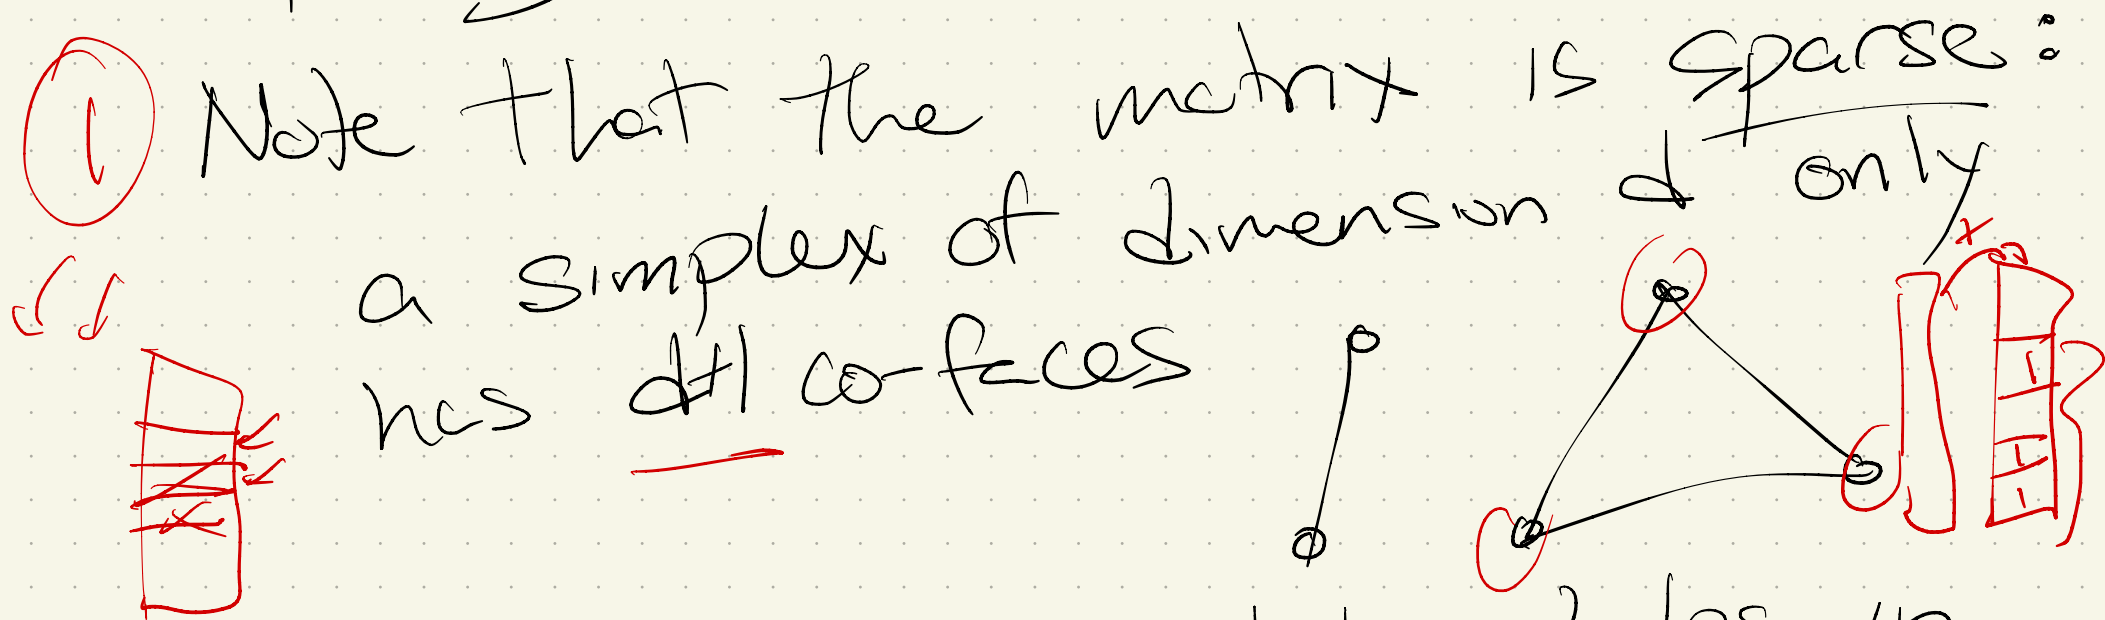 1 Note that the matrix is sparse:
a simplex of dimension d only
has d+1 co-faces
1
1
1